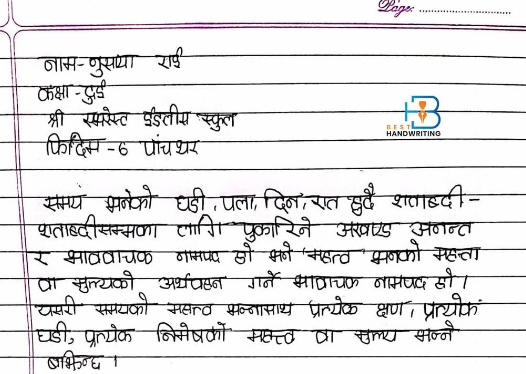 Page:
नाम-नुसया राई
कक्षा-दुई
श्री सगरेस्ट ईङलीस स्कुल
फिदिम -6 पांचथर
BEST
HANDWRITING
समय भनेको घडी, पला, दिन, रात हुदै शताब्दी-
शताब्दीसम्मका लागि पुकारिने अखण्ड अनन्त
र भाववाचक नामपद हो भने 'महत्व' भनको महत्ता
वा मुल्यको अर्थवहन गर्ने भावाचक नामपद हो ।
यसरी समयको महत्व भन्नासाथ प्रत्येक क्षण, प्रत्येक
घडी, प्रत्येक निमेषको महत्त्व वा मुल्य भन्ने
बुझिन्छ ।